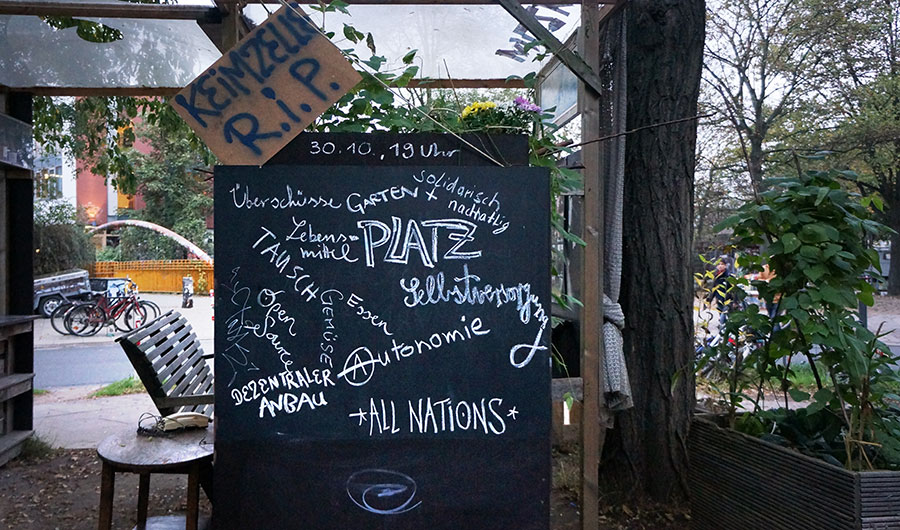 KEIMZELLE
R.i.P.
30.10., 19 Uhr
Überschüsse
GARTEN +
solidarisch
nachhaltig
Lebens-
mittel
PLATZ
TAUSCH
Selbstversorgung
Open
Essen
GEMÜSE
Autonomie
DEZENTRALER
ANBAU
*ALL NATIONS*